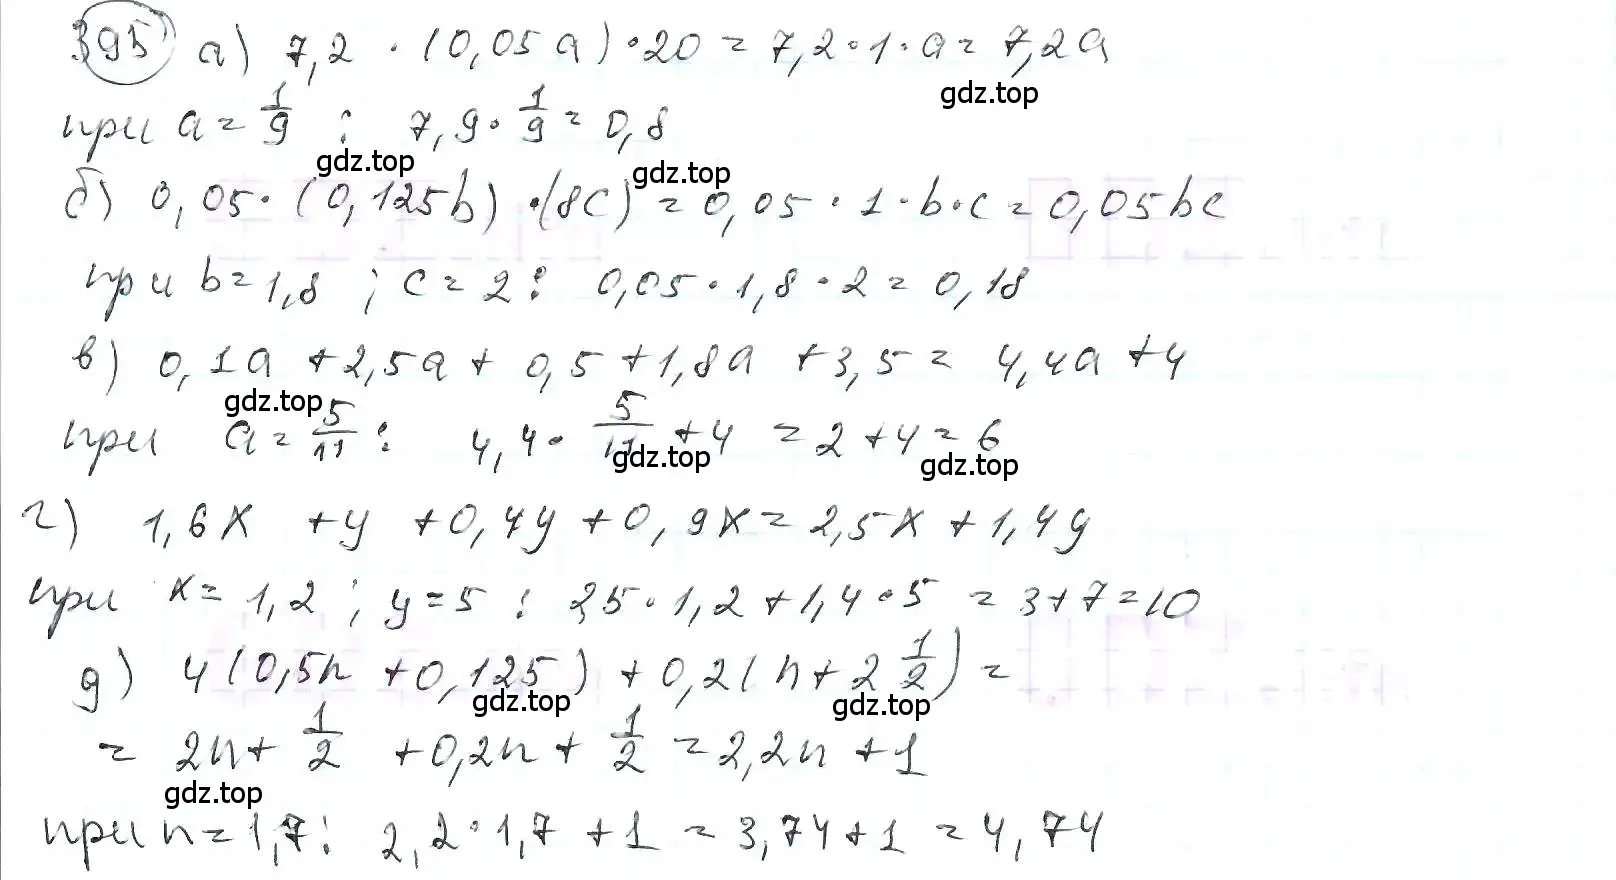 395 а) 7,2 · (0,05a) · 20 = 7,2 · 1 · a = 7,2a
gdz.top
при a = 1/9 : 7,9 · 1/9 = 0,8
gdz.top gdz.top
б) 0,05 · (0,125b) · (8c) = 0,05 · 1 · b · c = 0,05bc
при b = 1,8 ; c = 2 : 0,05 · 1,8 · 2 = 0,18
в) 0,1a + 2,5a + 0,5 + 1,8a + 3,5 = 4,4a + 4
gdz.top
при a = 5/11 : 4,4 · 5/11 + 4 = 2 + 4 = 6
gdz.top gdz.top
г) 1,6x + y + 0,4y + 0,9x = 2,5x + 1,4y
при x = 1,2 ; y = 5 : 2,5 · 1,2 + 1,4 · 5 = 3 + 7 = 10
д) 4(0,5n + 0,125) + 0,2(n + 2 1/2) =
gdz.top gdz.top
= 2n + 1/2 + 0,2n + 1/2 = 2,2n + 1
gdz.top
при n = 1,7 : 2,2 · 1,7 + 1 = 3,74 + 1 = 4,74